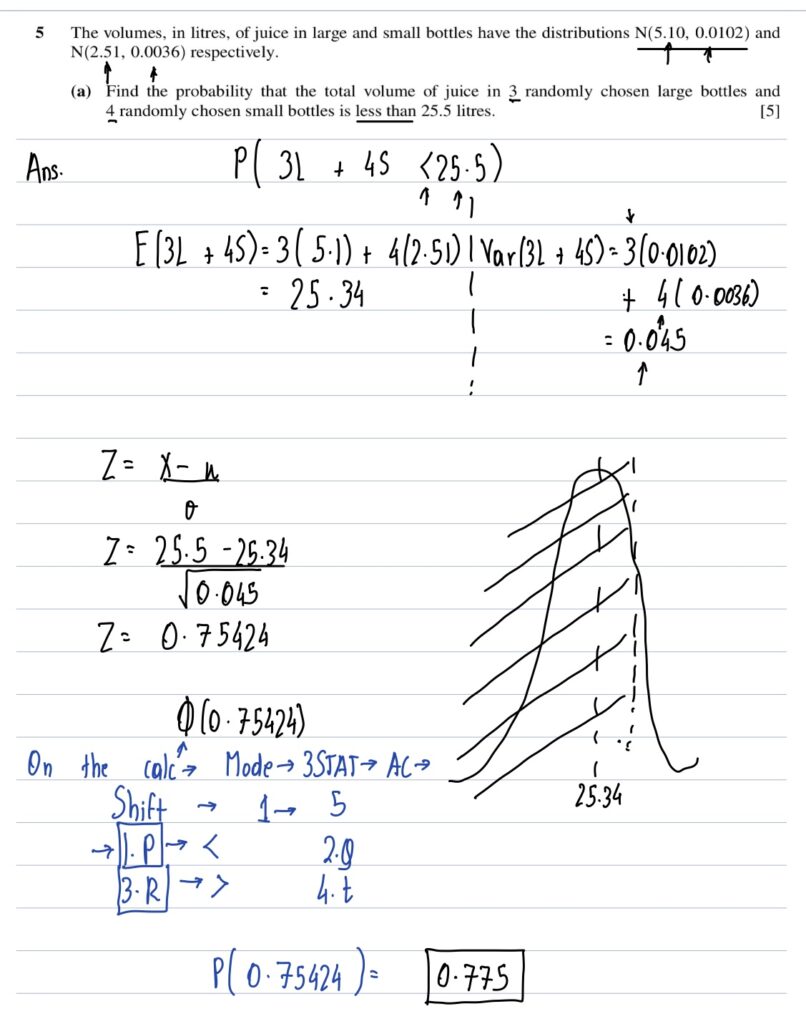 5 The volumes, in litres, of juice in large and small bottles have the distributions N(5.10, 0.0102) and
N(2.51, 0.0036) respectively.
(a) Find the probability that the total volume of juice in 3 randomly chosen large bottles and
4 randomly chosen small bottles is less than 25.5 litres. [5]
Ans. P( 3L + 4S < 25.5)
E(3L + 4S) = 3(5.1) + 4(2.51) | Var(3L + 4S) = 3(0.0102)
= 25.34 + 4(0.0036)
= 0.045
Z = X - μ
σ
Z = 25.5 - 25.34
√0.045
Z = 0.75424
Φ(0.75424)
On the calc → Mode → 3STAT → AC →
25.34
Shift → 1 → 5
→ 1.P → < 2.Q
3.R → > 4.t
P( 0.75424 ) = 0.775